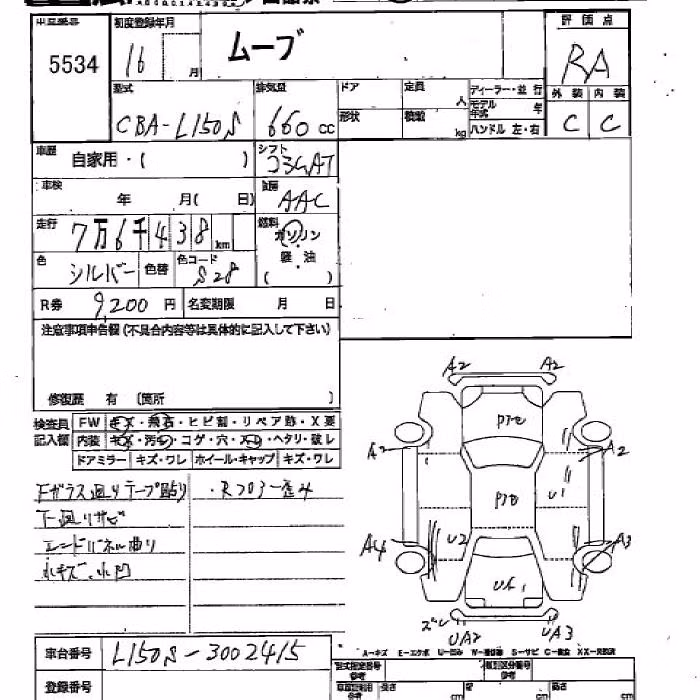 初度登録年月
評価点
5534
16 月
ムーブ
RA
型式
排気量
ドア
定員 人
ディーラー・並行
外装 内装
CBA-L150S
660 cc
形状
積載 kg
モデル年式 年
ハンドル 左・右
C C
車歴
自家用・( )
シフト
コラムAT
車検
年 月( 日)
AAC
走行
7万6千438 km
燃料
ガソリン
軽油
( )
色
シルバー
色替
色コード
S28
R券
9200 円
名変期限 月 日
注意事項申告欄(不具合内容等は具体的に記入して下さい)
修復歴 有 (箇所 )
検査員記入欄
FW キズ・飛石・ヒビ割・リペア跡・X要
内装 キズ・汚れ・コゲ・穴・スレ・ヘタリ・破レ
ドアミラー キズ・ワレ ホイール・キャップ キズ・ワレ
Fガラス廻りテープ貼り
・Rフロアー歪み
下廻りサビ
エンドパネル曲り
小キズ、小凹
A2 A2
P1
A2 A2
P1
U1
A4
U2
A3
UA1
ズレ
UA2 UA3
A-キズ E-エクボ U-凹み
S-サビ
車台番号
L150S-3002415
登録番号
型式指定番号
類別区分番号
参考
長さ cm
cm
高さ cm